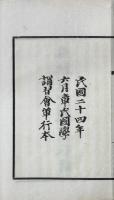 民國二十四年
六月章氏國學
講習會單行本